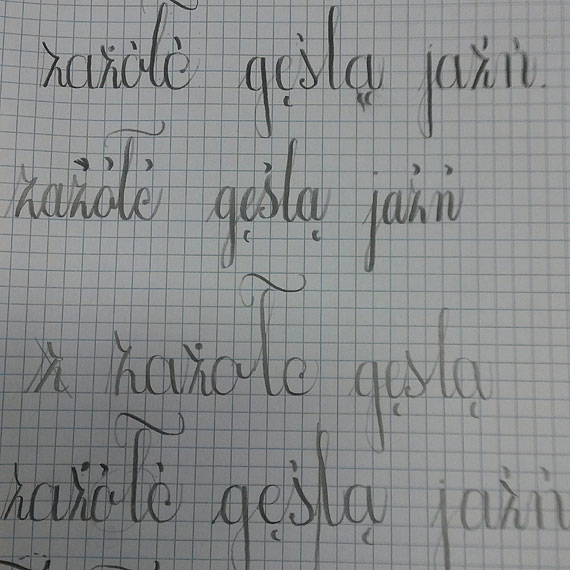 zażółć gęślą jaźń.
zażółć gęślą jaźń
z zażołc gęslą
zażółć gęślą jaźń